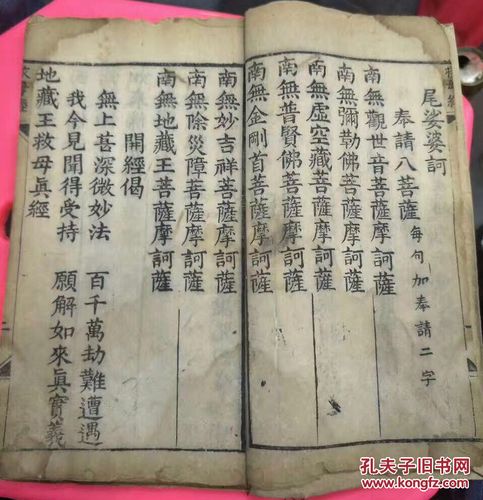 尾娑婆訶
奉請八菩薩 每句加奉請二字
南無觀世音菩薩摩訶薩
南無彌勒佛菩薩摩訶薩
南無虛空藏菩薩摩訶薩
南無普賢佛菩薩摩訶薩
南無金剛首菩薩摩訶薩
南無妙吉祥菩薩摩訶薩
南無除災障菩薩摩訶薩
南無地藏王菩薩摩訶薩
開經偈
無上甚深微妙法 百千萬劫難遭遇
我今見聞得受持 願解如來眞實義
地藏王救母眞經
孔夫子旧书网
www.kongfz.com